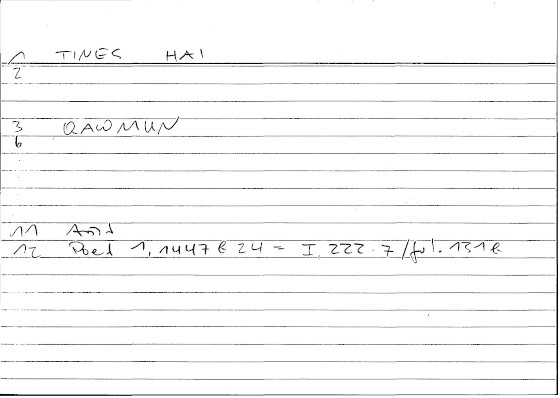 1 TINES HAI
2
3 QAWMUN
6
11 Arab
12 Poet 1, 1447 b 24 = I, 222.7 / fol. 131 b